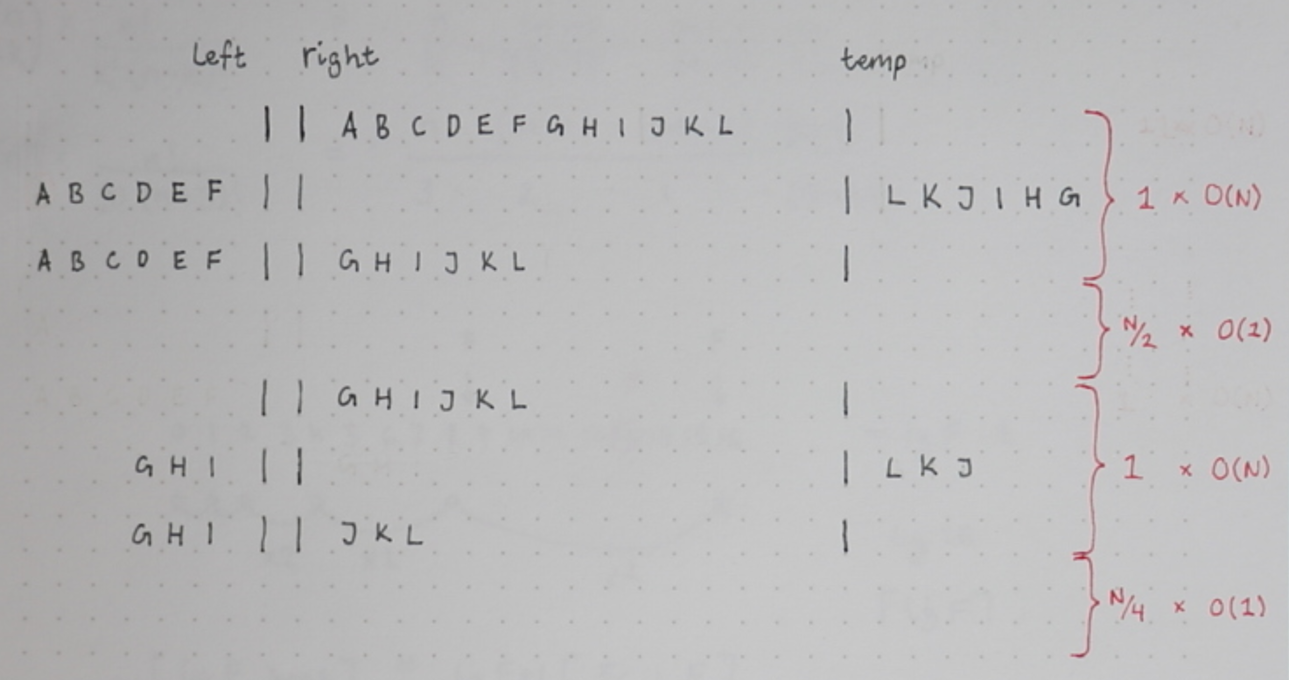 left right temp
| | A B C D E F G H I J K L |
A B C D E F | | | L K J I H G 1 × O(N)
A B C D E F | | G H I J K L |
N/2 × O(1)
| | G H I J K L |
G H I | | | L K J 1 × O(N)
G H I | | J K L |
N/4 × O(1)